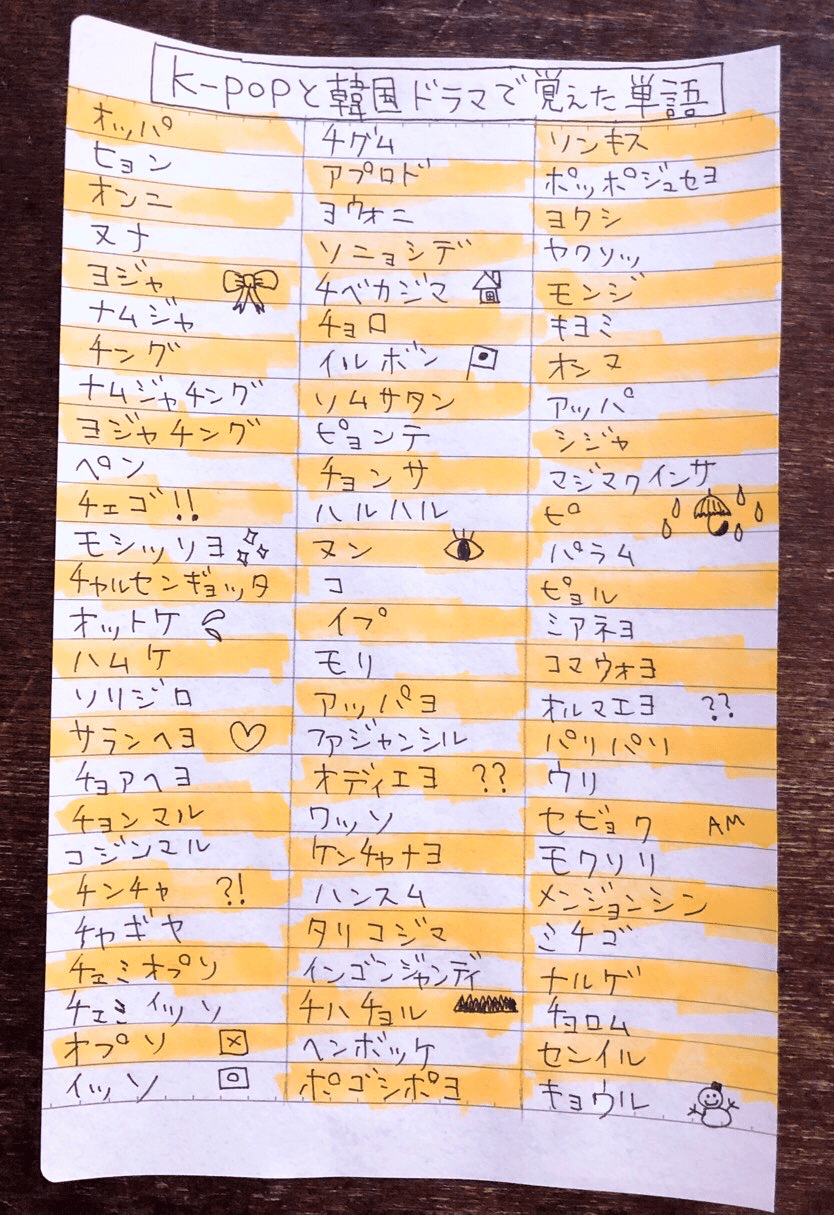 K-POPと韓国ドラマで覚えた単語
オッパ
ヒョン
オンニ
ヌナ
ヨジャ
ナムジャ
チング
ナムジャチング
ヨジャチング
ペン
チェゴ!!
モシッソヨ
チャルセンギョッタ
オットケ
ハムケ
ソリジロ
サランヘヨ
チョアヘヨ
チョンマル
コジンマル
チンチャ ?!
チャギヤ
チェミオプソ
チェミイッソ
オプソ
イッソ
チグム
アプロド
ヨウォニ
ソニョシデ
チベカジマ
チョロ
イルボン
ソムサタン
ピョンテ
チョンサ
ハルハル
ヌン
コ
イプ
モリ
アッパヨ
ファジャンシル
オディエヨ ??
ワッソ
ケンチャナヨ
ハンスム
タリコジマ
インゴンジャンディ
チハチョル
ヘンボッケ
ポゴシポヨ
ソンキス
ポッポジュセヨ
ヨクシ
ヤクソッ
モンジ
キヨミ
オンマ
アッパ
シジャ
マジマクインサ
ピ
パラム
ピョル
ミアネヨ
コマウォヨ
オルマエヨ ??
パリパリ
ウリ
セビョク AM
モクソリ
メンジョンシン
ミチゴ
ナルゲ
チョロム
センイル
キョウル